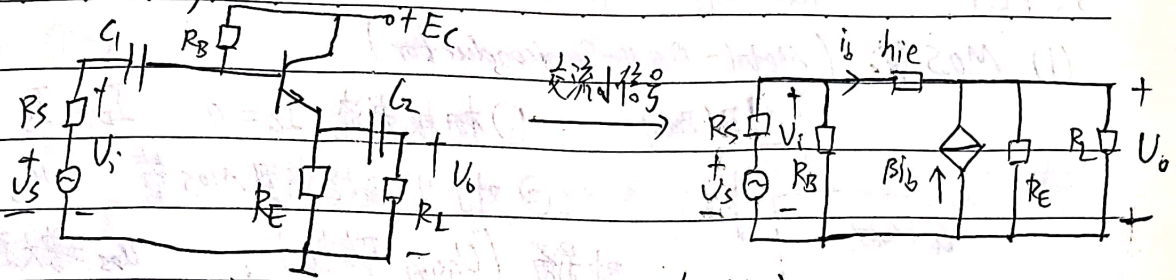 C1
RB
+ EC
RS
+
Ui
+
Us
-
-
C2
RE
RL
+
U0
-
交流小信号
ib
hie
RS
+
Ui
+
Us
-
-
RB
βib
RE
RL
+
U0
+